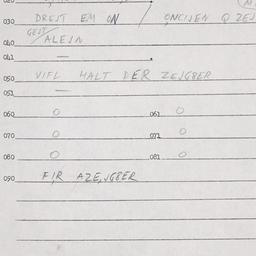 030 DREJT EM ON / ONCIJEN Q ZEJ
GEIJ
040 ALEJN
041 —
050 VIFL HALT DER ZEJGBER
051 —
060 O 061 O
070 O 071 O
080 O 081 O
090 FIR AZEJGBER